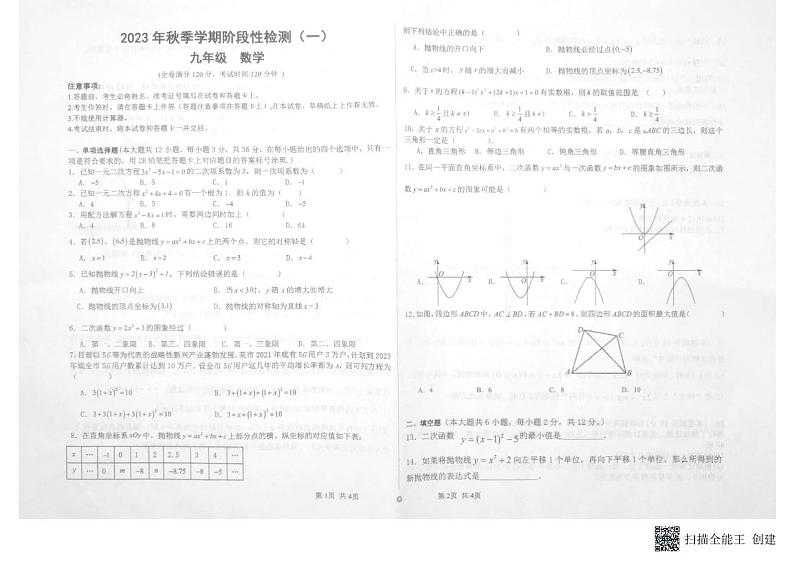 2023 年秋季学期阶段性检测（一）
九年级 数学
（全卷满分 120 分，考试时间:120 分钟 ）
注意事项:
1.答题前，考生必将姓名、准考证号填写在试卷和答题卡上。
2.考生作答时，请在答题卡上作答（答题注意事项在答题卡上）,在本试卷、草稿纸上上作答无效。
3.不能使用计算器。
4.考试结束时，将本试卷和答题卡一并交回。
一、单项选择题(本大题共 12 小题，每小题 3 分，共 36 分，在每小题给出的四个选项中，只有一
项是符合要求的，用 2B 铅笔把答题卡上对应题目的答案标号涂黑.)
1．已知一元二次方程 3x²－5x－1=0 的二次项系数为 3，则一次项系数为（ ）
A．－5 B．5 C．1 D．－1
2．已知一元二次方程 x²+kx+4=0 有一个根为 1，则 k 的值为（ ）
A．4 B．5 C．－4 D．－5
3．用配方法解方程 x²－8x=1 时，需要两边同时加上（ ）
A．4 B．8 C．16 D．64
4．若(2,5)，(6,5)是抛物线 y=ax²+bx+c 上的两个点，则它的对称轴是（ ）
A．x=1 B．x=2 C．x=3 D．x=4
5．已知抛物线 y=2(x－3)²+1，下列结论错误的是（ ）
A．抛物线开口向上 B．当 x<3 时，y 随 x 的增大而增大
C．抛物线的顶点坐标为(3,1) D．抛物线的对称轴为直线 x=3
6．二次函数 y=2x²+3 的图象经过（ ）
A．第一、二象限 B．第三、四象限 C．第一、三象限 D．第二、四象限
7.目前以 5G 等为代表的战略性新兴产业蓬勃发展,某市 2021 年底有 5G 用户 3 万户,计划到 2023
年底全市 5G 用户数累计达到 10 万户．设全市 5G 用户这几年的平均增长率都为 x，则可列方程为
（ ）
A．3(1+x)²=10 B．3+(1+x)+(1+x)²=10
C．3+3(1+x)+3(1+x)²=10 D．3+x+(1+x)²=10
8．在直角坐标系 xOy 中，抛物线 y=ax²+bx+c 上部分点的横、纵坐标的对应值如下表：
x … -1 0 1 2 2.5 3 4 …
y … 0 m -8 n -8.75 -8 -5 …
第 1页 共 4页
则下列结论中正确的是（ ）
A．抛物线的开口向下 B．抛物线必经过点(0,－5)
C．当 x>4 时，y 随 x 的增大而减小 D．抛物线的顶点坐标为(2.5,－8.75)
9．关于 x 的方程(k－1)²x²+(2k+1)x+1=0 有实数根，则 k 的取值范围是（ ）
A．k≥1/4 且 k≠±1 B．k≥1/4 且 k≠1 C．k>1/4 D．k≥1/4
三角形一定是（ ）．
A．直角三角形 B．等腰三角形 C．钝角三角形 D．等腰直角三角形
11．在同一平面直角坐标系中，二次函数 y=ax² 与一次函数 y=bx+c 的图象如图所示，则二次函
数 y=ax²+bx+c 的图象可能是（ ）
y
O x
A． B． C． D．
12.如图，四边形 ABCD 中，AC⊥BD，若 AC+BD=8，则四边形 ABCD 的面积最大值是（ ）
D C
A B
A．4 B．6 C．8 D．10
二、填空题（本大题共 6 小题，每小题 2 分，共 12 分。）
13．二次函数 y=(x－1)²－5 的最小值是________．
14．如果将抛物线 y=x²+2 向左平移 1 个单位，再向下平移 1 个单位，那么所得到的
新抛物线的表达式是________．
第 2页 共 4页
扫描全能王 创建